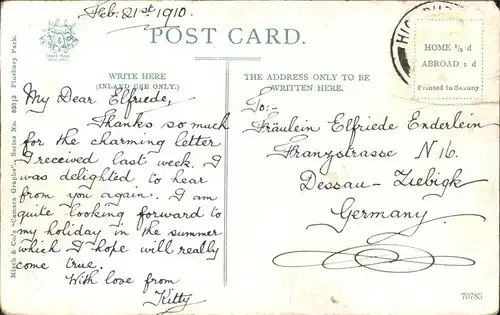 Feb: 21st 1910.
POST CARD.
HOME ½d
ABROAD 1d
Printed in Saxony
WRITE HERE
(INLAND USE ONLY.)
THE ADDRESS ONLY TO BE
WRITTEN HERE.
My Dear Elfriede,
Thanks so much
for the charming letter
I received last week. I
was delighted to hear
from you again. I am
quite looking forward to
my holiday in the summer
which I hope will really
come true.
With love from
Kitty
To:-
Fräulein Elfriede Enderlein
Franzstrasse N 16.
Dessau-Ziebigk
Germany.
70785
Finsbury Park.